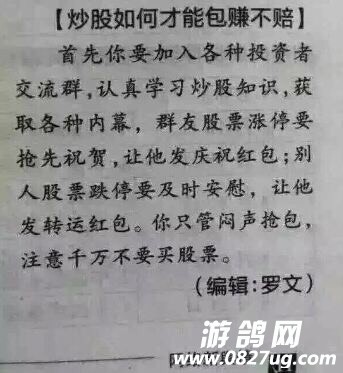 【炒股如何才能包赚不赔】
首先你要加入各种投资者
交流群,认真学习炒股知识,获
取各种内幕,群友股票涨停要
抢先祝贺,让他发庆祝红包;别
人股票跌停要及时安慰,让他
发转运红包。你只管闷声抢包,
注意千万不要买股票。
(编辑:罗文)
游鸽网
www.0827ug.com